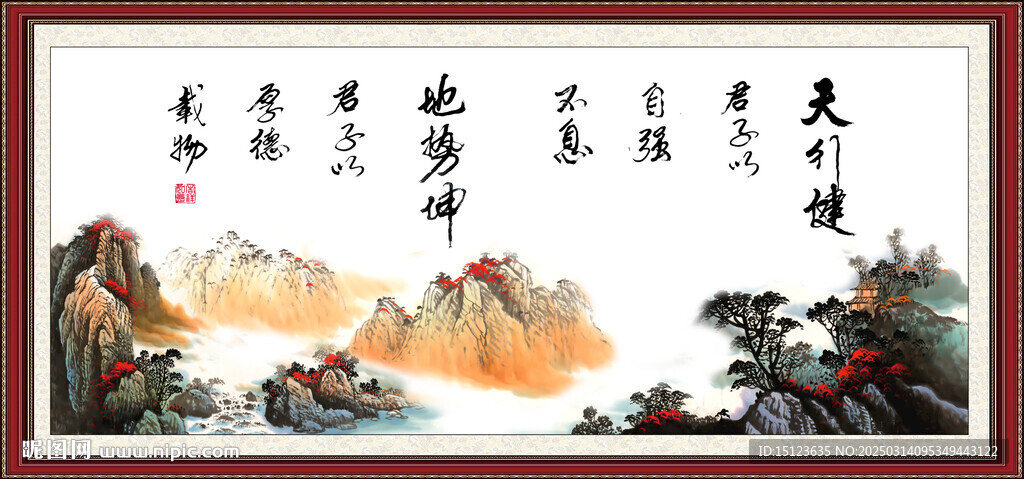 天行健
君子以
自强
不息
地势坤
君子以
厚德
载物
昵图网 www.nipic.com
ID:15123635 NO:20250314095349443122